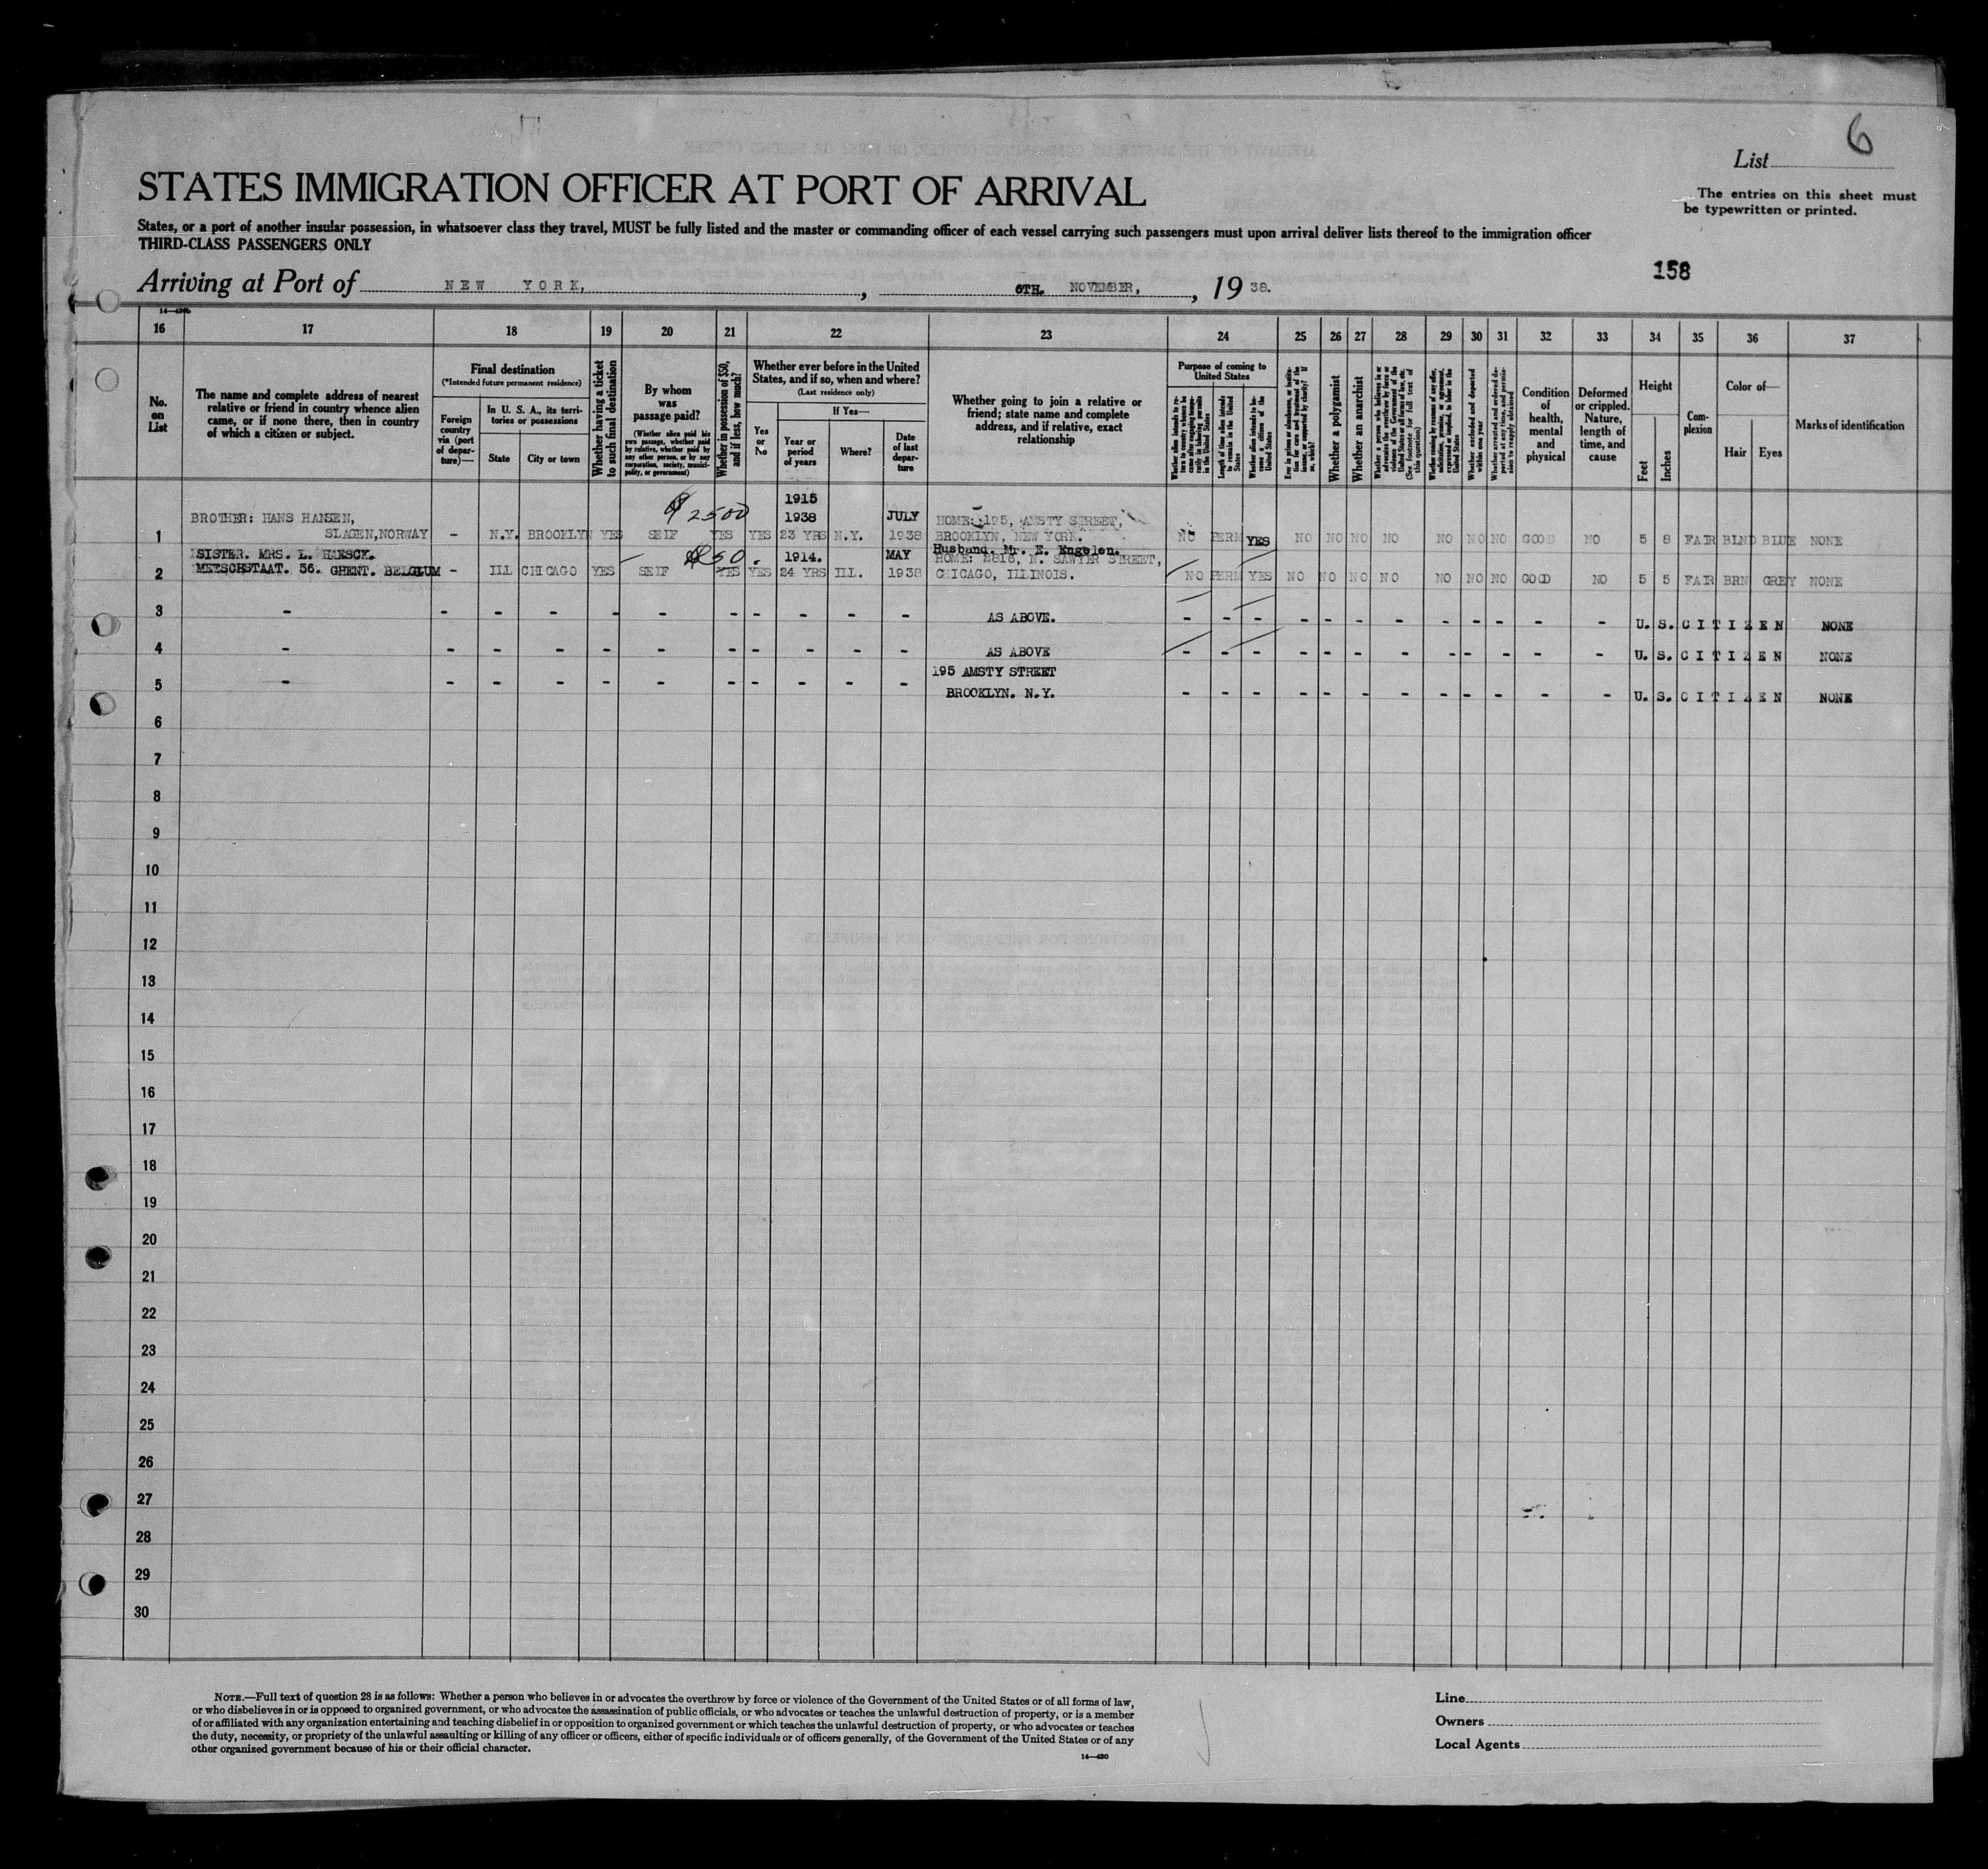 6
List
The entries on this sheet must
be typewritten or printed.
STATES IMMIGRATION OFFICER AT PORT OF ARRIVAL
States, or a port of another insular possession, in whatsoever class they travel, MUST be fully listed and the master or commanding officer of each vessel carrying such passengers must upon arrival deliver lists thereof to the immigration officer
THIRD-CLASS PASSENGERS ONLY
158
Arriving at Port of NEW YORK, , 6TH. NOVEMBER, , 19 38.
16 17 18 19 20 21 22 23 24 25 26 27 28 29 30 31 32 33 34 35 36 37
No. on List
The name and complete address of nearest
relative or friend in country whence alien
came, or if none there, then in country
of which a citizen or subject.
Final destination
(*Intended future permanent residence)
Foreign country via (port of departure)—
In U. S. A., its territories or possessions
State
City or town
Whether having a ticket to such final destination
By whom was passage paid?
(Whether alien paid his own passage, whether paid by relative, whether paid by any other person, or by any corporation, society, municipality, or government)
Whether in possession of $50, and if less, how much?
Whether ever before in the United
States, and if so, when and where?
(Last residence only)
Yes or No
If Yes—
Year or period of years
Where?
Date of last departure
Whether going to join a relative or
friend; state name and complete
address, and if relative, exact
relationship
Purpose of coming to
United States
Length of time alien intends to remain in the United States
Whether alien intends to become a citizen of the United States
Whether a polygamist
Whether an anarchist
(See footnote for full text of this question)
Condition of health, mental and physical
Deformed or crippled. Nature, length of time, and cause
Height
Feet
Inches
Complexion
Color of—
Hair
Eyes
Marks of identification
$2500
1 BROTHER: HANS HANSEN,
SLAGEN, NORWAY - N.Y. BROOKLYN YES SEIF YES YES 1915 1938 23 YRS N.Y. JULY 1938 HOME: 195, AMSTY STREET,
BROOKLYN, NEW YORK. NO PERM YES NO NO NO NO NO NO NO GOOD NO 5 8 FAIR BLND BLUE NONE
$50.
2 SISTER. MRS. L.
56. GHENT. BELGIUM - ILL CHICAGO YES SEIF YES YES 1914. 24 YRS ILL. MAY 1938 Husband. Mr. E. Engelen.
HOME: 2816, N. SAWYER STREET,
CHICAGO, ILLINOIS. NO PERM YES NO NO NO NO NO NO NO GOOD NO 5 5 FAIR BRN GREY NONE
3 - - - - - - - - - - - AS ABOVE. - - - - - - - - - - - - U. S. CITIZEN NONE
4 - - - - - - - - - - - AS ABOVE - - - - - - - - - - - - U. S. CITIZEN NONE
195 AMSTY STREET
5 - - - - - - - - - - - BROOKLYN. N.Y. - - - - - - - - - - - - U. S. CITIZEN NONE
6
7
8
9
10
11
12
13
14
15
16
17
18
19
20
21
22
23
24
25
26
27
28
29
30
NOTE.—Full text of question 28 is as follows: Whether a person who believes in or advocates the overthrow by force or violence of the Government of the United States or of all forms of law,
or who disbelieves in or is opposed to organized government, or who advocates the assassination of public officials, or who advocates or teaches the unlawful destruction of property, or is a member
of or affiliated with any organization entertaining and teaching disbelief in or opposition to organized government or which teaches the unlawful destruction of property, or who advocates or teaches
the duty, necessity, or propriety of the unlawful assaulting or killing of any officer or officers, either of specific individuals or of officers generally, of the Government of the United States or of any
other organized government because of his or their official character.
14—430
Line
Owners
Local Agents